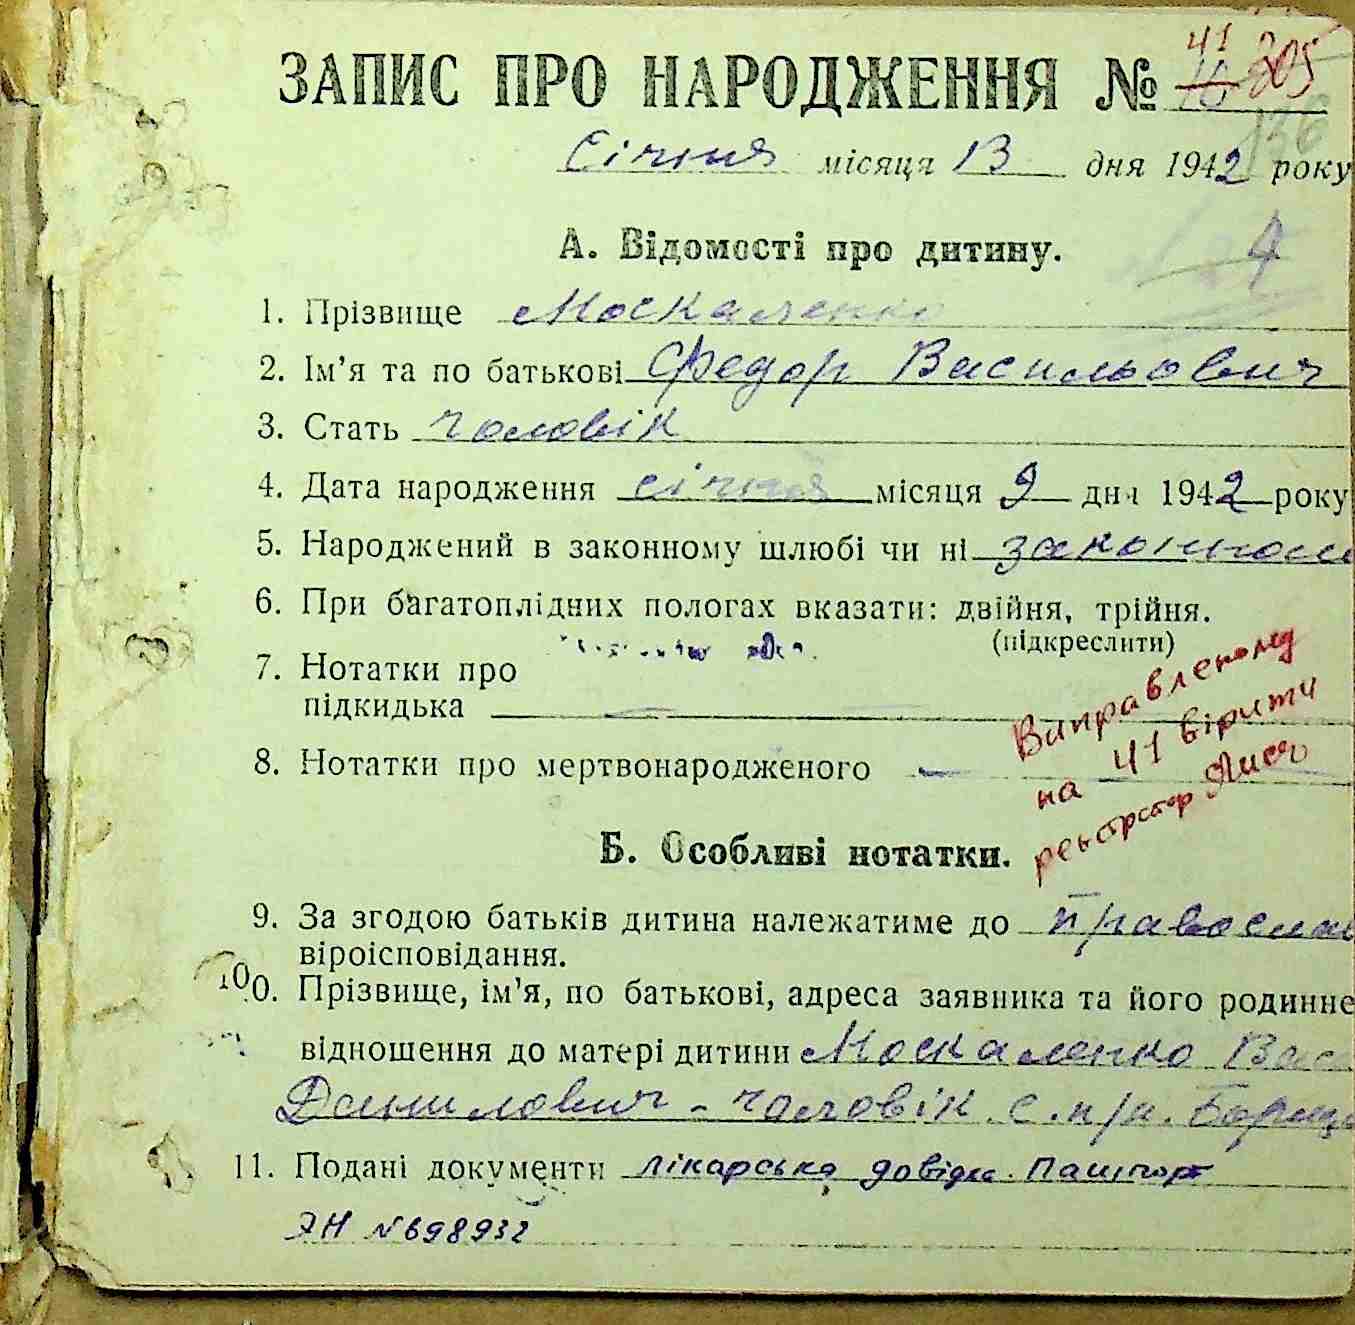 41 305
ЗАПИС ПРО НАРОДЖЕННЯ № 10
136
Січня місяця 13 дня 1942 року
А. Відомості про дитину.
4
1. Прізвище Москаленко
2. Ім'я та по батькові Федор Васильович
3. Стать чоловік
4. Дата народження січня місяця 9 дня 1942 року
5. Народжений в законному шлюбі чи ні законном
6. При багатоплідних пологах вказати: двійня, трійня.
(підкреслити)
7. Нотатки про
підкидька —
8. Нотатки про мертвонародженого —
Виправленому
на 41 вірити
реєстратор
Б. Особливі нотатки.
9. За згодою батьків дитина належатиме до православ
віроісповідання.
10. Прізвище, ім'я, по батькові, адреса заявника та його родинне
відношення до матері дитини Москаленко Вас
Данилович - чоловік с.
11. Подані документи лікарська довідка. Пашпорт
ЭН № 698932